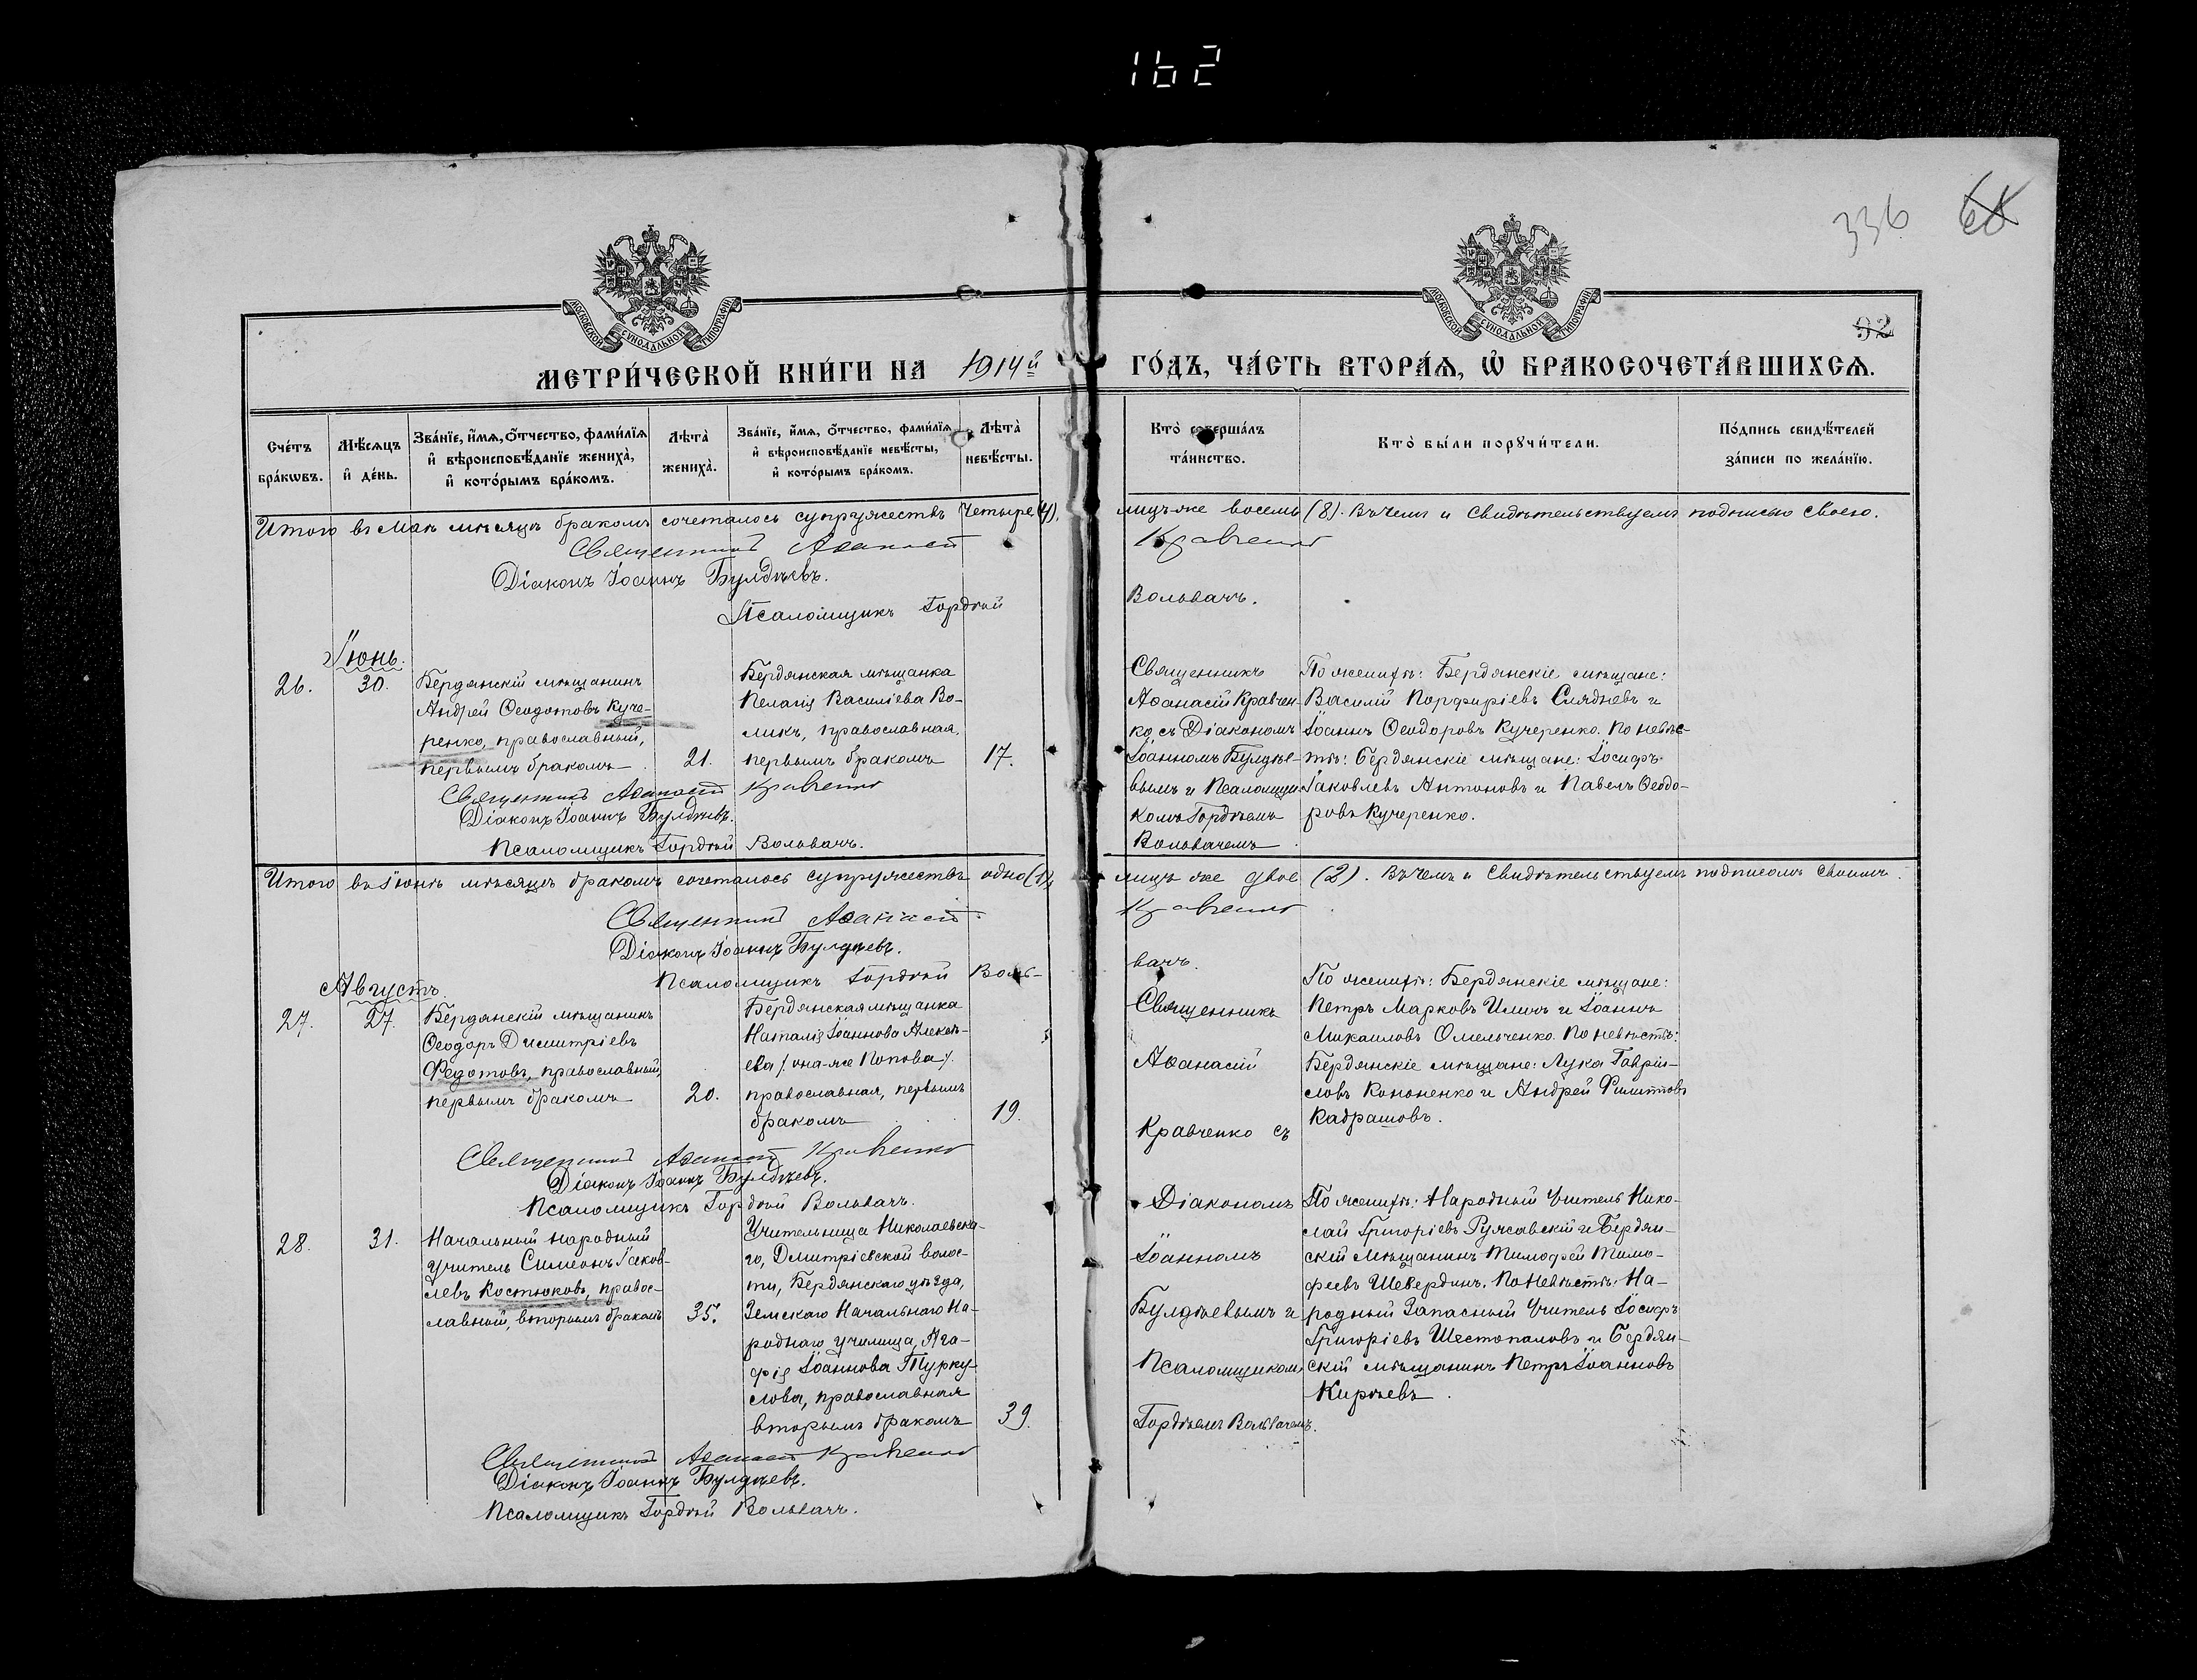 162
336
68
92
МОСКОВСКОЙ СУНОДАЛЬНОЙ ТИПОГРАФІИ
МОСКОВСКОЙ СУНОДАЛЬНОЙ ТИПОГРАФІИ
МЕТРИ́ЧЕСКОЙ КНИ́ГИ НА 1914й ГО́ДЪ, ЧА́СТЬ ВТОРА́Ѧ, Ѡ҆ БРАКОСОЧЕТА́ВШИХСѦ.
Сче́тъ
бра́кѡвъ.
Мѣ́сяцъ
и҆ де́нь.
Зва́нїе, и҆́мѧ, о҆́тчество, фами́лїѧ
и҆ вѣроисповѣ́данїе жениха̀,
и҆ кото́рымъ бра́комъ.
Лѣ́та̀
жениха̀.
Зва́нїе, и҆́мѧ, о҆́тчество, фами́лїѧ
и҆ вѣроисповѣ́данїе невѣ́сты,
и҆ кото́рымъ бра́комъ.
Лѣ́та̀
невѣ́сты.
Кто̀ соверша́лъ
та́инство.
Кто̀ бы́ли порꙋчи́тели.
По́дпись свидѣ́телей
за́писи по жела́нїю.
Итого въ Маѣ мѣсяцѣ бракомъ сочеталось супружествъ Четыре (4), лицъ же восемь (8). Въ чемъ и свидѣтельствуемъ подписью своею.
Священникъ Аѳанасій Кравченко
Діаконъ Іоаннъ Булдѣевъ.
Псаломщикъ Гордѣй Вольвачъ.
Іюнь.
26.
30.
Бердянскій мѣщанинъ
Андрей Ѳеодотовъ Куче-
ренко, православный,
первымъ бракомъ
21.
Бердянская мѣщанка
Пелагія Василіева Во-
ликъ, православная,
первымъ бракомъ
17.
Священникъ
Аѳанасій Кравчен-
ко съ Діакономъ
Іоанномъ Булдѣе-
вымъ и Псаломщи-
комъ Гордѣемъ
Вольвачемъ
По женихѣ: Бердянскіе мѣщане:
Василій Порфиріевъ Слядневъ и
Іоаннъ Ѳеодоровъ Кучеренко. По невѣс-
тѣ: Бердянскіе мѣщане: Іосифъ
Іаковлевъ Антоновъ и Павелъ Ѳеодо-
ровъ Кучеренко.
Священникъ Аѳанасій Кравченко
Діаконъ Іоаннъ Булдѣевъ.
Псаломщикъ Гордѣй Вольвачъ.
Итого въ Іюнѣ мѣсяцѣ бракомъ сочеталось супружествъ одно (1), лицъ же двое (2). Въ чемъ и свидѣтельствуемъ подписомъ своимъ.
Священникъ Аѳанасій Кравченко
Діаконъ Іоаннъ Булдѣевъ.
Псаломщикъ Гордѣй Воль-
вачъ.
Августъ
27.
27.
Бердянскій мѣщанинъ
Ѳеодоръ Димитріевъ
Федотовъ, православный,
первымъ бракомъ
20.
Бердянская мѣщанка
Наталія Іоаннова Алексѣ-
ева /она-же Попова/.
православная, первымъ
бракомъ
19.
Священникъ
Аѳанасій
Кравченко съ
По женихѣ: Бердянскіе мѣщане:
Петръ Марковъ Илинъ и Іоаннъ
Михаиловъ Омельченко. По невѣстѣ:
Бердянскіе мѣщане: Лука Гаврии-
ловъ Кононенко и Андрей Филипповъ
Кадрашовъ.
Священникъ Аѳанасій Кравченко
Діаконъ Іоаннъ Булдѣевъ.
Псаломщикъ Гордѣй Вольвачъ.
28.
31.
Начальный народный
учитель Симеонъ Іаков-
левъ Костюковъ, правос-
лавный, вторымъ бракомъ
35.
Учительница Николаевска-
го, Дмитріевской волос-
ти, Бердянскаго уѣзда,
Земскаго Начальнаго На-
роднаго училища, Ага-
фія Іоаннова Турку-
лова, православная
вторымъ бракомъ
39.
Діакономъ
Іоанномъ
Булдѣевымъ и
Псаломщикомъ
Гордѣемъ Вольвачемъ.
По женихѣ: Народный Учитель Нико-
лай Григоріевъ Ружавскій и Бердян-
скій мѣщанинъ Тимофей Тимо-
феевъ Шевердинъ. По невѣстѣ: На-
родный Запасный Учитель Іосифъ
Григоріевъ Шестопаловъ и Бердян-
скій мѣщанинъ Петръ Іоанновъ
Кирѣевъ.
Священникъ Аѳанасій Кравченко
Діаконъ Іоаннъ Булдѣевъ.
Псаломщикъ Гордѣй Вольвачъ.